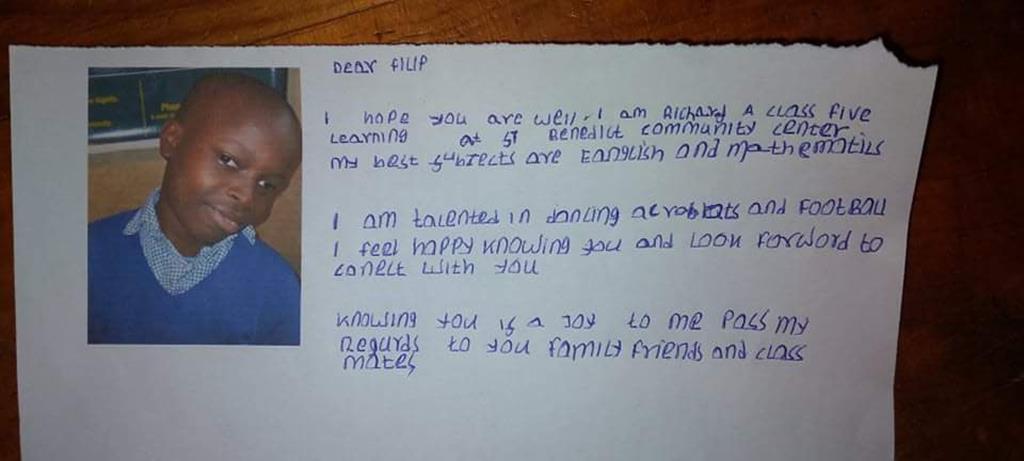 Dear FILIP
I hope you are well. I am Richard A class five
Learning at ST Benedict community center
my best subjects are Eanglish and mathematics
I am talented in dancing acrobats and FOOTBALL
I feel happy knowing you and Look Forword to
conect with you
Knowing you is a Joy to me Pass my
Regards to you family friends and class
mates,